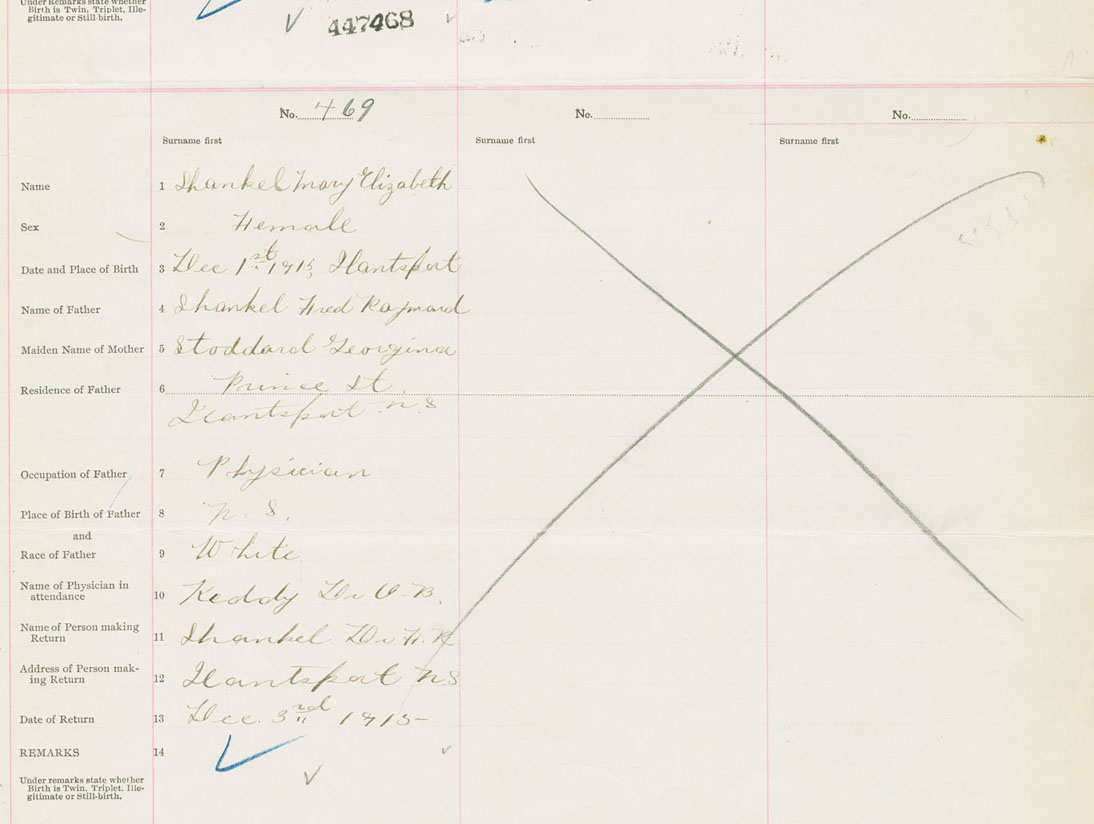 Under Remarks state whether
Birth is Twin, Triplet, Ille-
gitimate or Still-birth.
447468
No. 469
No.
No.
Surname first
Surname first
Surname first
Name 1 Shankel Mary Elizabeth
Sex 2 Female
Date and Place of Birth 3 Dec 1st 1915 Hantsport
Name of Father 4 Shankel Fred Raymond
Maiden Name of Mother 5 Stoddard Georgina
Residence of Father 6 Prince St
Hantsport N.S
Occupation of Father 7 Physician
Place of Birth of Father 8 N. S.
and
Race of Father 9 White
Name of Physician in
attendance 10 Keddy Dr O.B.
Name of Person making
Return 11 Shankel Dr F.R
Address of Person mak-
ing Return 12 Hantsport N.S
Date of Return 13 Dec. 3rd 1915
REMARKS 14
Under remarks state whether
Birth is Twin, Triplet, Ille-
gitimate or Still-birth.